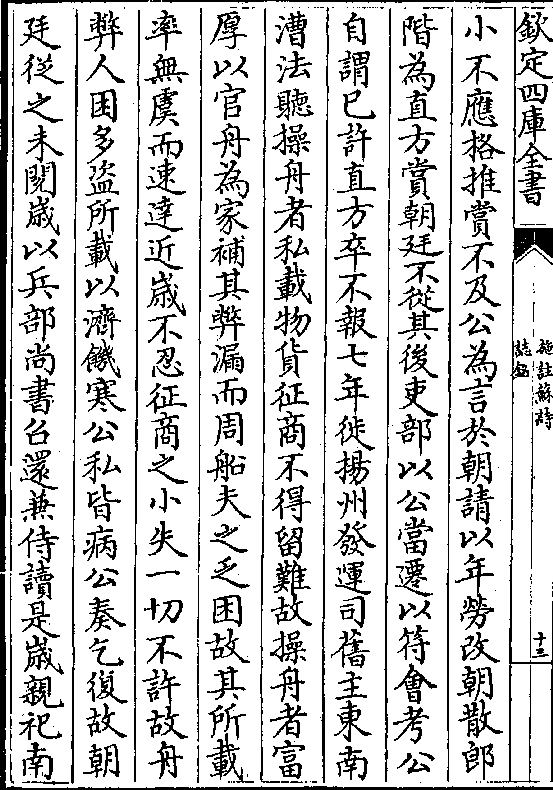 欽定四庫全書
施註蘇詩
誌銘
十三
小不應格推賞不及公為言於朝請以年勞改朝散郎
階為直方賞朝廷不從其後吏部以公當遷以符會考公
自謂已許直方卒不報七年徙揚州發運司舊主東南
漕法聽操舟者私載物貨征商不得留難故操舟者富
厚以官舟為家補其弊漏而周船夫之乏困故其所載
率無虞而速達近歲不忍征商之小失一切不許故舟
弊人困多盜所載以濟饑寒公私皆病公奏乞復故朝
廷從之未閱歲以兵部尚書召還兼侍讀是歲親祀南